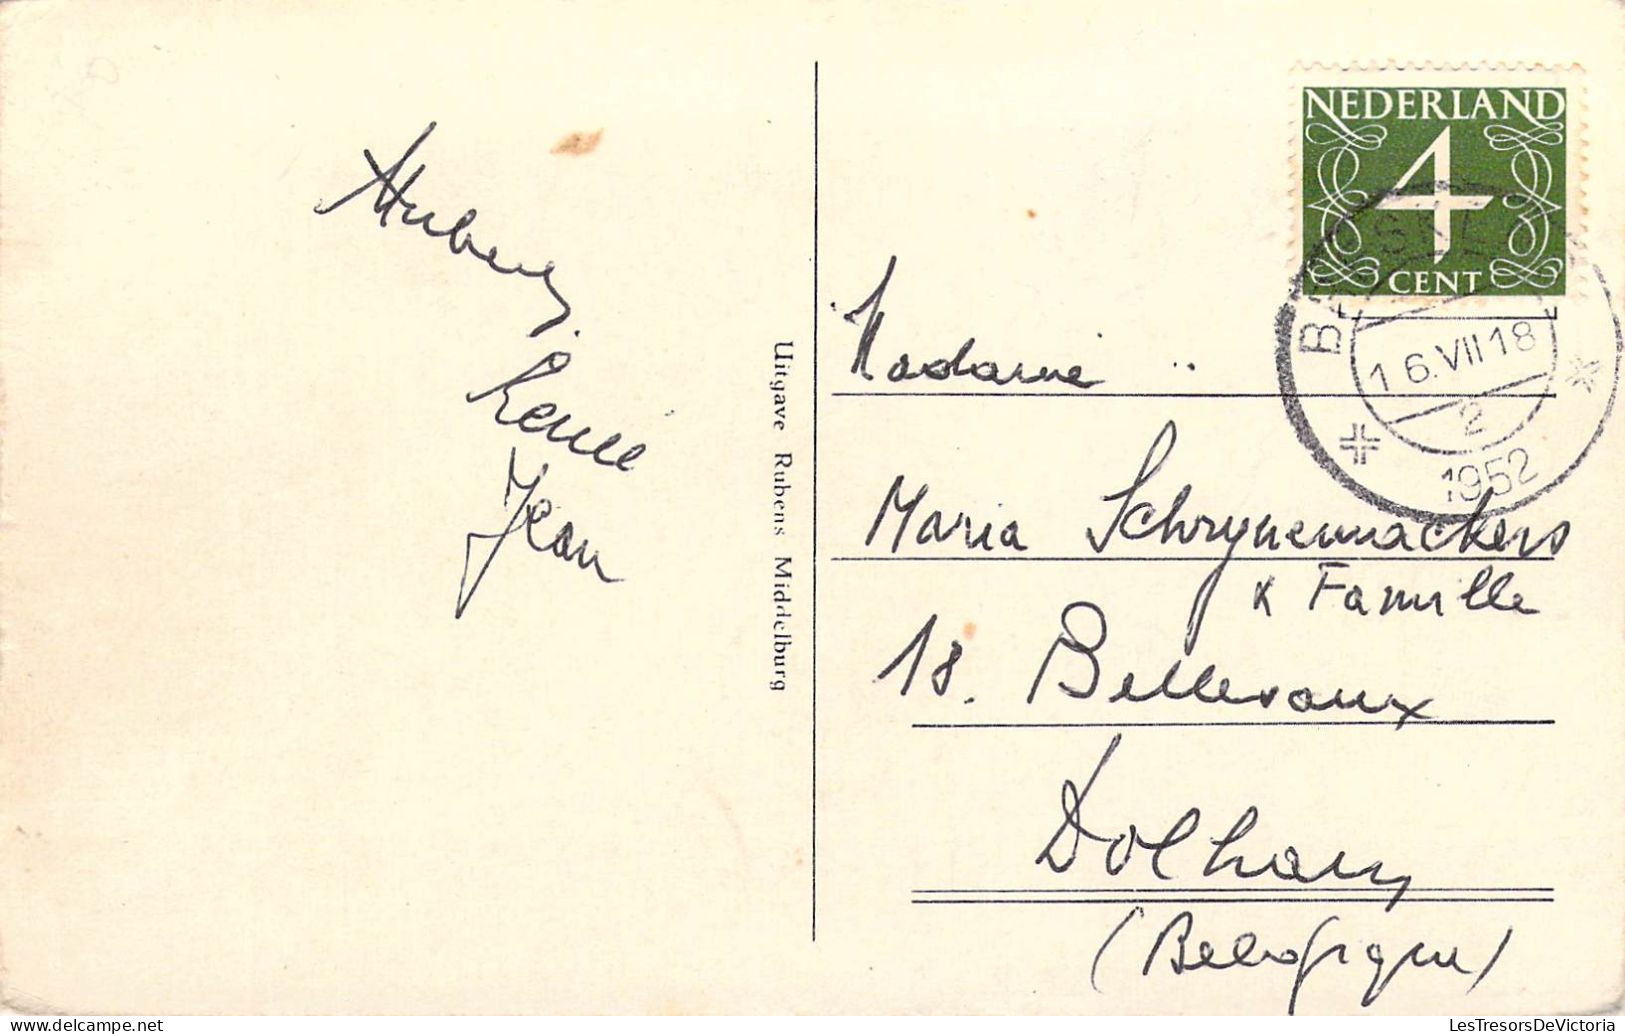 Renée
Jean
Uitgave Rubens Middelburg
NEDERLAND
4
CENT
16.VII 18
2
1952
Madame
Maria Schrynemackers
& Famille
18. Bellevaux
Dolhain
(Belgique)
LesTresorsDeVictoria